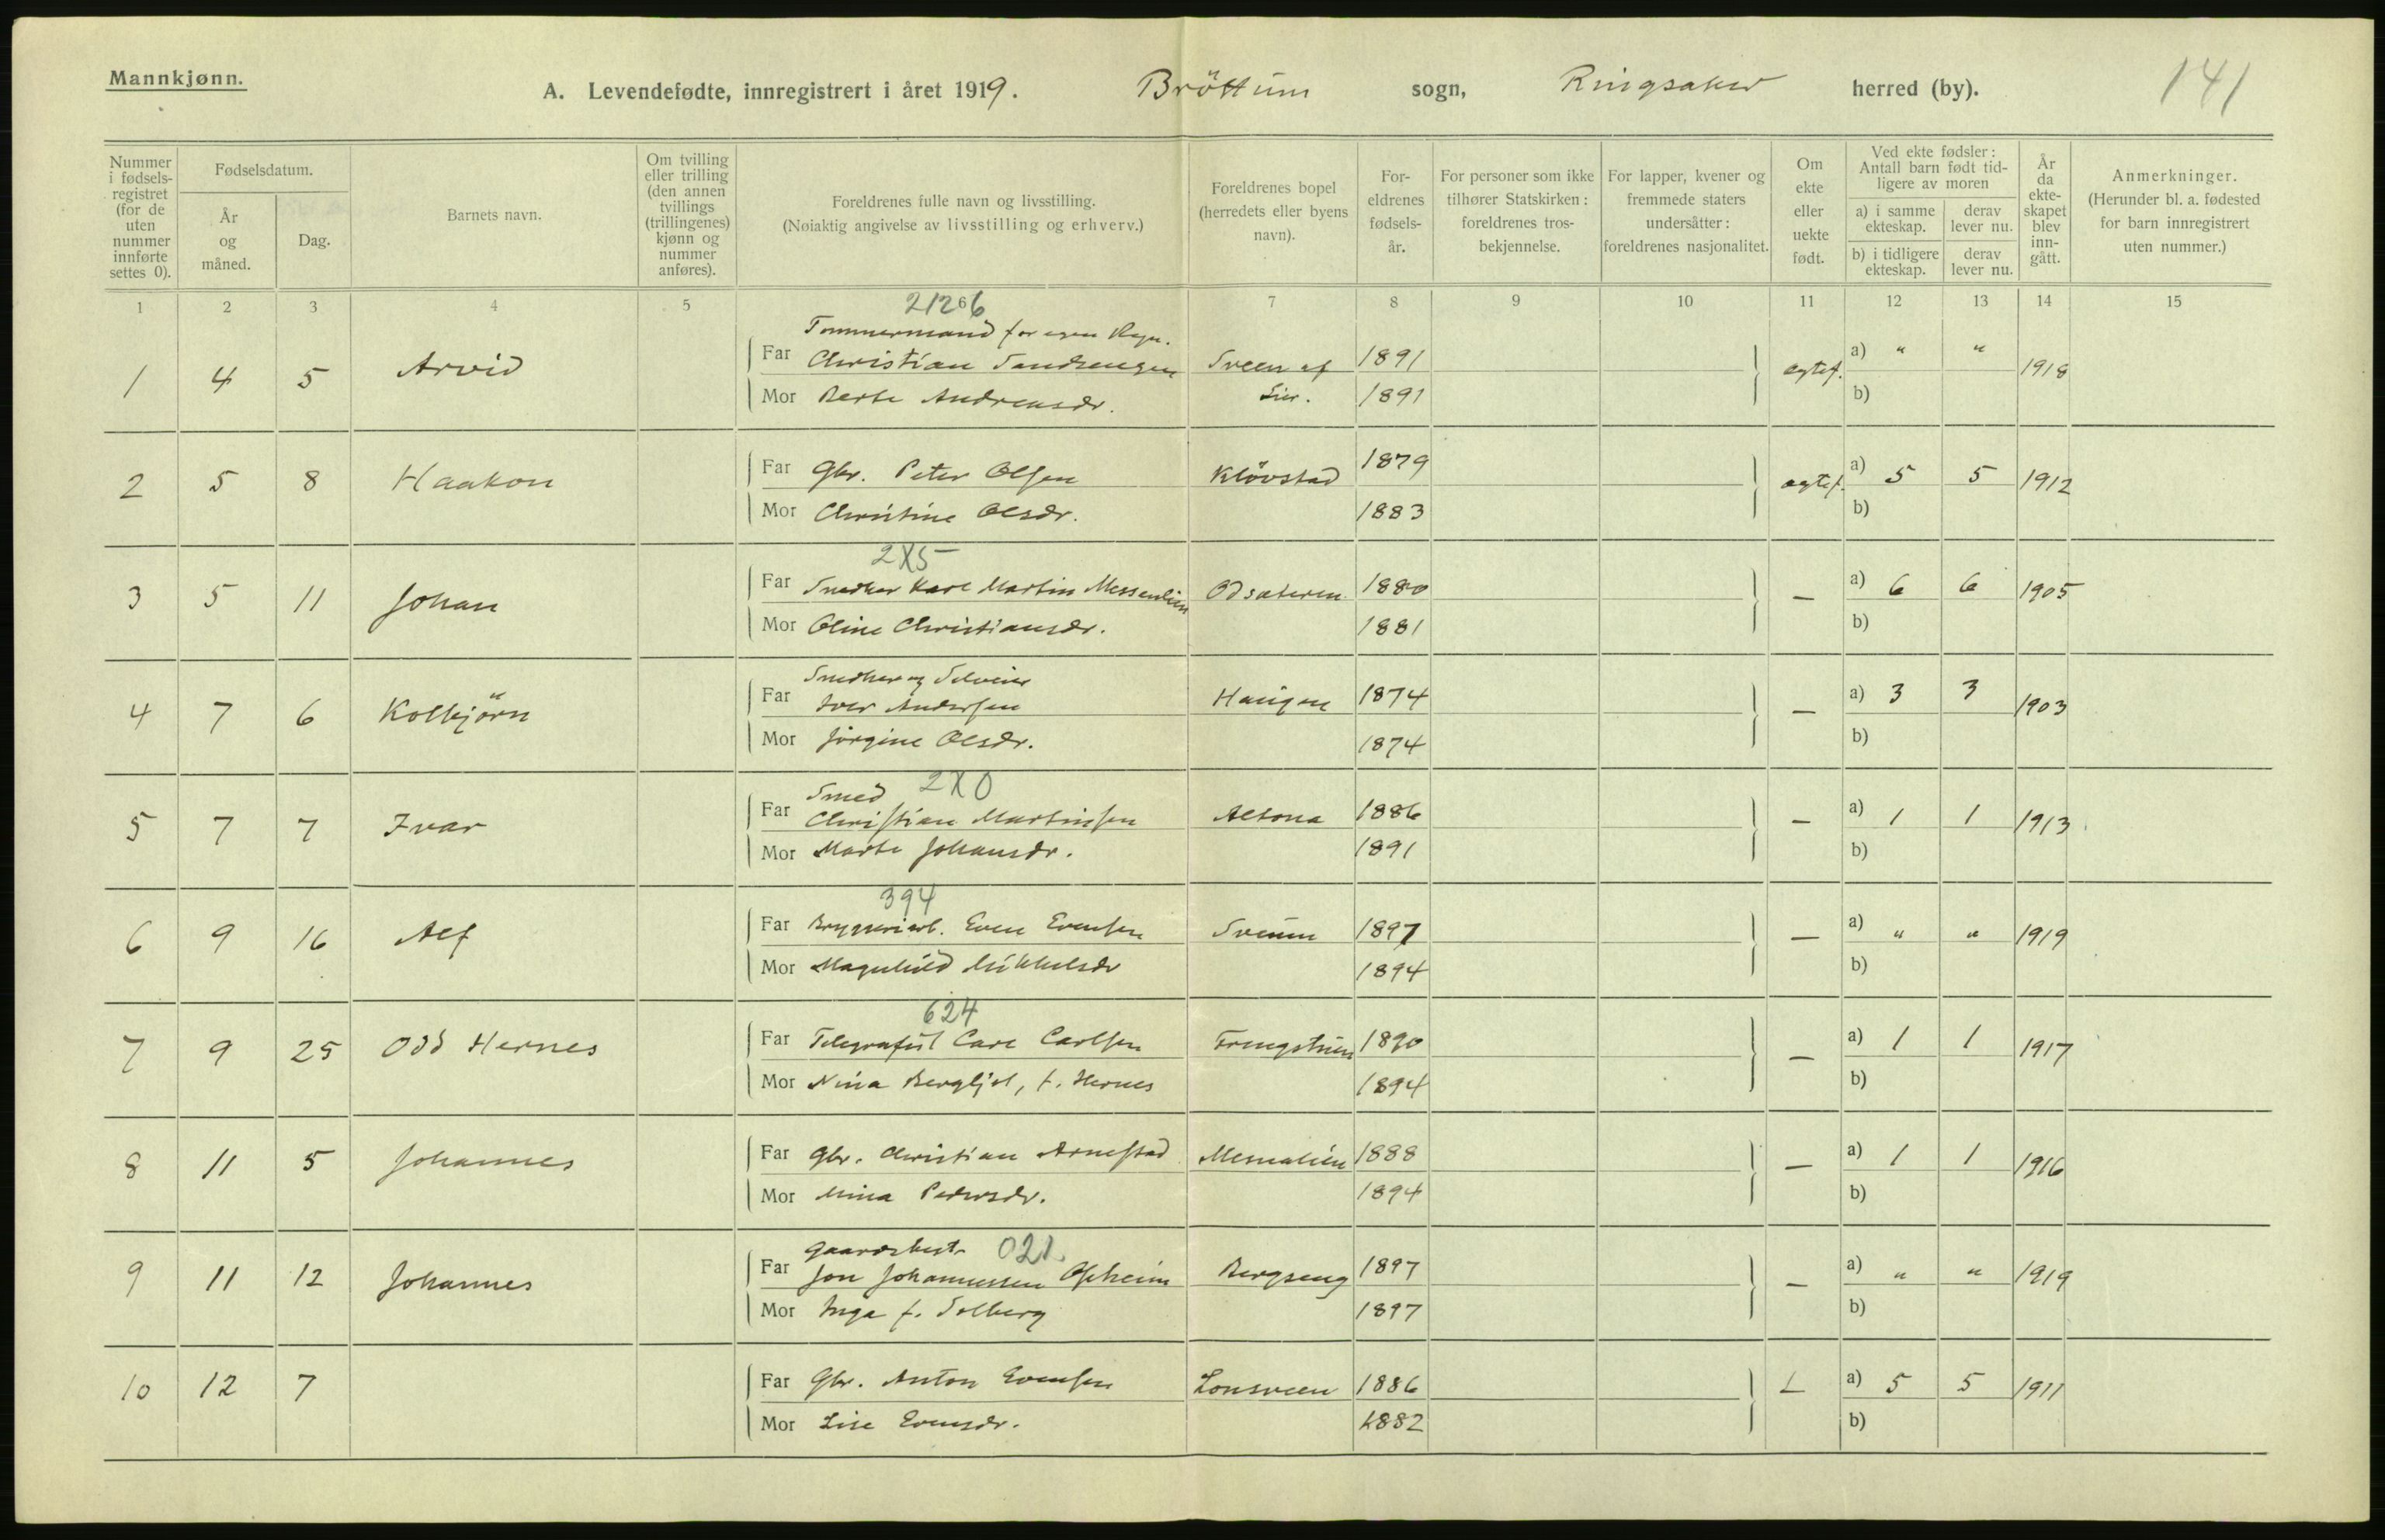 Mannkjønn.
A. Levendefødte, innregistrert i året 1919. Bröttum sogn, Ringsaker herred (by). 141
Nummer i fødsels-registret (for de uten nummer innførte settes 0).
Fødselsdatum.
År og måned.
Dag.
Barnets navn.
Om tvilling eller trilling (den annen tvillings (trillingenes) kjønn og nummer anføres).
Foreldrenes fulle navn og livsstilling.
(Nøiaktig angivelse av livsstilling og erhverv.)
Foreldrenes bopel (herredets eller byens navn).
For-eldrenes fødsels-år.
For personer som ikke tilhører Statskirken: foreldrenes tros-bekjennelse.
For lapper, kvener og fremmede staters undersåtter: foreldrenes nasjonalitet.
Om ekte eller uekte født.
Ved ekte fødsler: Antall barn født tid-ligere av moren
a) i samme ekteskap.
derav lever nu.
b) i tidligere ekteskap.
derav lever nu.
År da ekte-skapet blev inn-gått.
Anmerkninger.
(Herunder bl. a. fødested for barn innregistrert uten nummer.)
1 2 3 4 5 6 7 8 9 10 11 12 13 14 15
2126
Tømmermand for egen Regn.
1 4 5 Arvid Far Christian Sandsengen Sveen af 1891 egtef. a) " " 1918
Mor Berte Andreasdr. Lier. 1891 b)
2 5 8 Haakon Far Gbr. Peter Olsen Klövstad 1879 egtef. a) 5 5 1912
Mor Christine Olsdr. 1883 b)
2X5
3 5 11 Johan Far Snedker Karl Martin Messenlien Odsæteren 1880 — a) 6 6 1905
Mor Oline Christiansdr. 1881 b)
Snedker og Selveier
4 7 6 Kolbjörn Far Iver Andersen Haugen 1874 — a) 3 3 1903
Mor Jörgine Olsdr. 1874 b)
Smed 2X0
5 7 7 Ivar Far Christian Martinsen Altona 1886 — a) 1 1 1913
Mor Marte Johansdr. 1891 b)
394
6 9 16 Alf Far Bryggeriarb. Even Evensen Sveum 1897 — a) " " 1919
Mor Magnhild Mikkelsdr 1894 b)
624
7 9 25 Odd Hernes Far Telegrafist Carl Carlsen 1890 — a) 1 1 1917
Mor Nina Bergljot, f. Hernes 1894 b)
8 11 5 Johannes Far Gbr. Christian Arnestad Mesnalien 1888 — a) 1 1 1916
Mor Mina Pedersdr. 1894 b)
Gaardsbest. 021
9 11 12 Johannes Far Jon Johannessen Opheim Bergseng 1897 — a) " " 1919
Mor Inga f. Solberg 1897 b)
10 12 7 Far Gbr. Anton Evensen Lonsveen 1886 a) 5 5 1911
Mor Lise Evensdr. 1882 b)